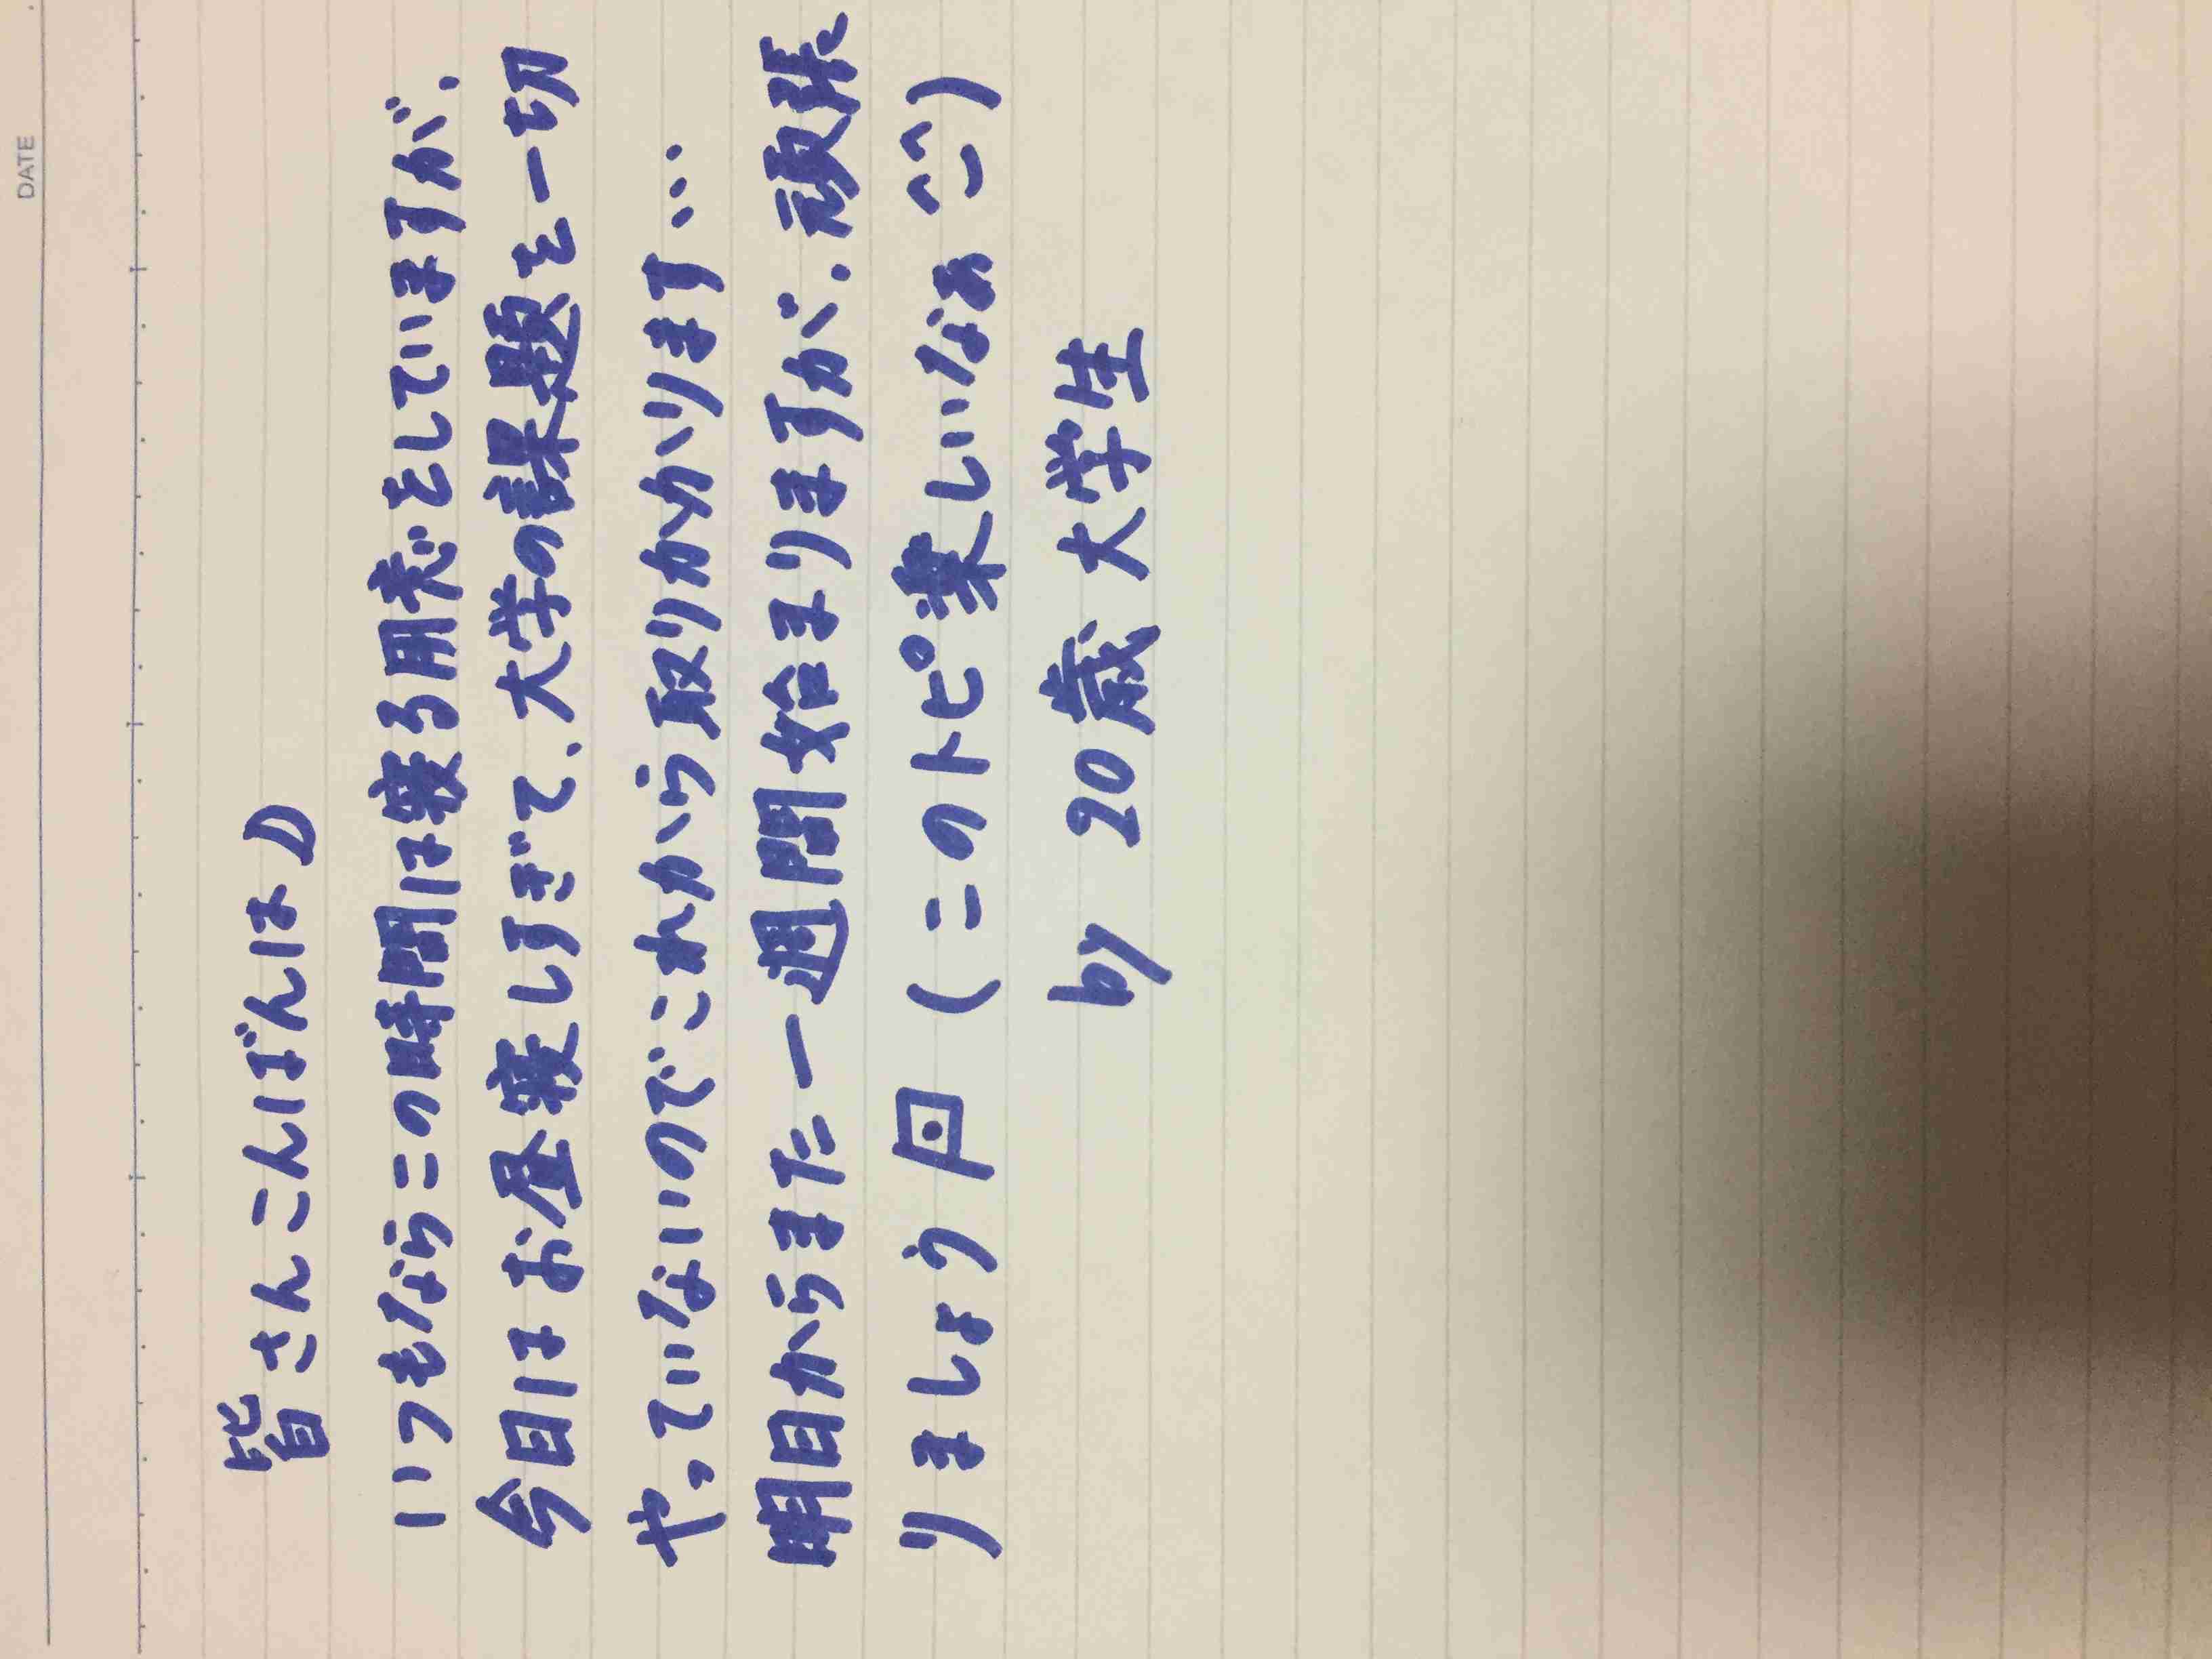 DATE
皆さんこんばんは☽
いつもならこの時間は寝る用意をしていますが、
今日はお昼寝しすぎて、大学の課題を一切
やっていないのでこれから取りかかります…
明日からまた一週間始まりますが、頑張
りましょう (このトピ楽しいなぁ^^)
by 20歳 大学生